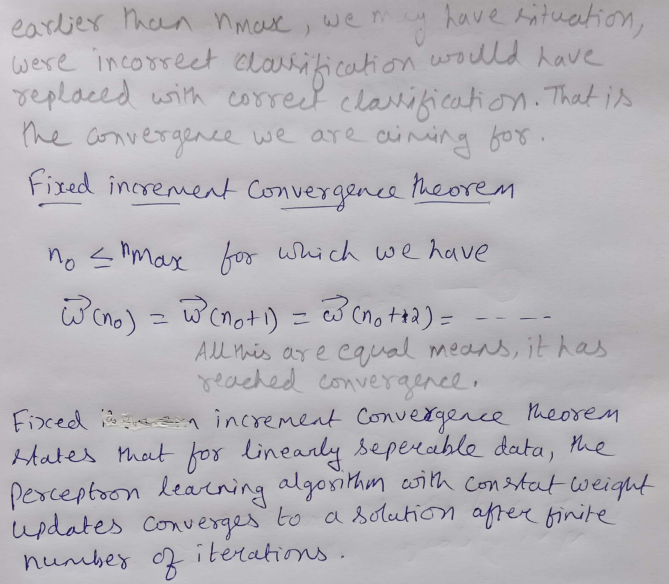 earlier than nmax, we may have situation,
were incorrect classification would have
replaced with correct classification. That is
the convergence we are aiming for.
Fixed increment Convergence theorem
n₀ ≤ nmax for which we have
w⃗(n₀) = w⃗(n₀+1) = w⃗(n₀+2) = -----
All this are equal means, it has
reached convergence.
Fixed increment convergence theorem
states that for linearly seperable data, the
Perceptron learning algorithm with constat weight
updates converges to a solution after finite
number of iterations.